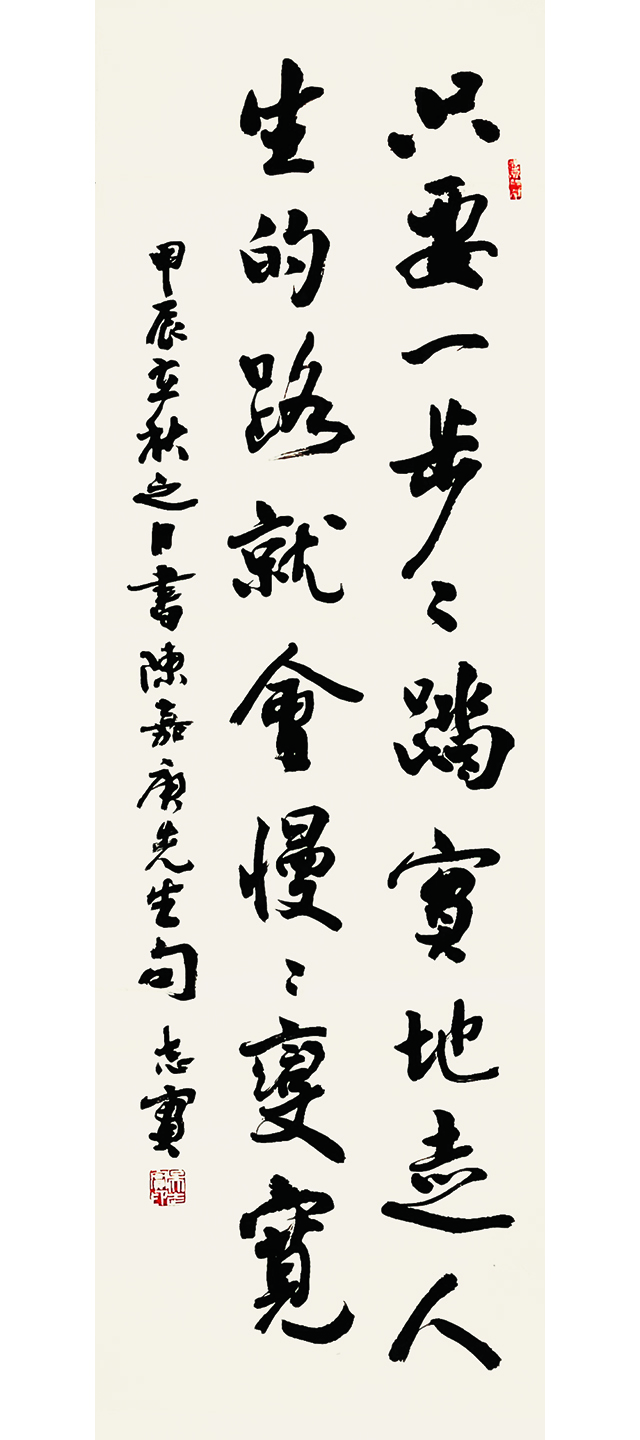 只要一步〻踏實地走人
生的路就會慢〻變寬
甲辰立秋之日書陳嘉庚先生句 志實